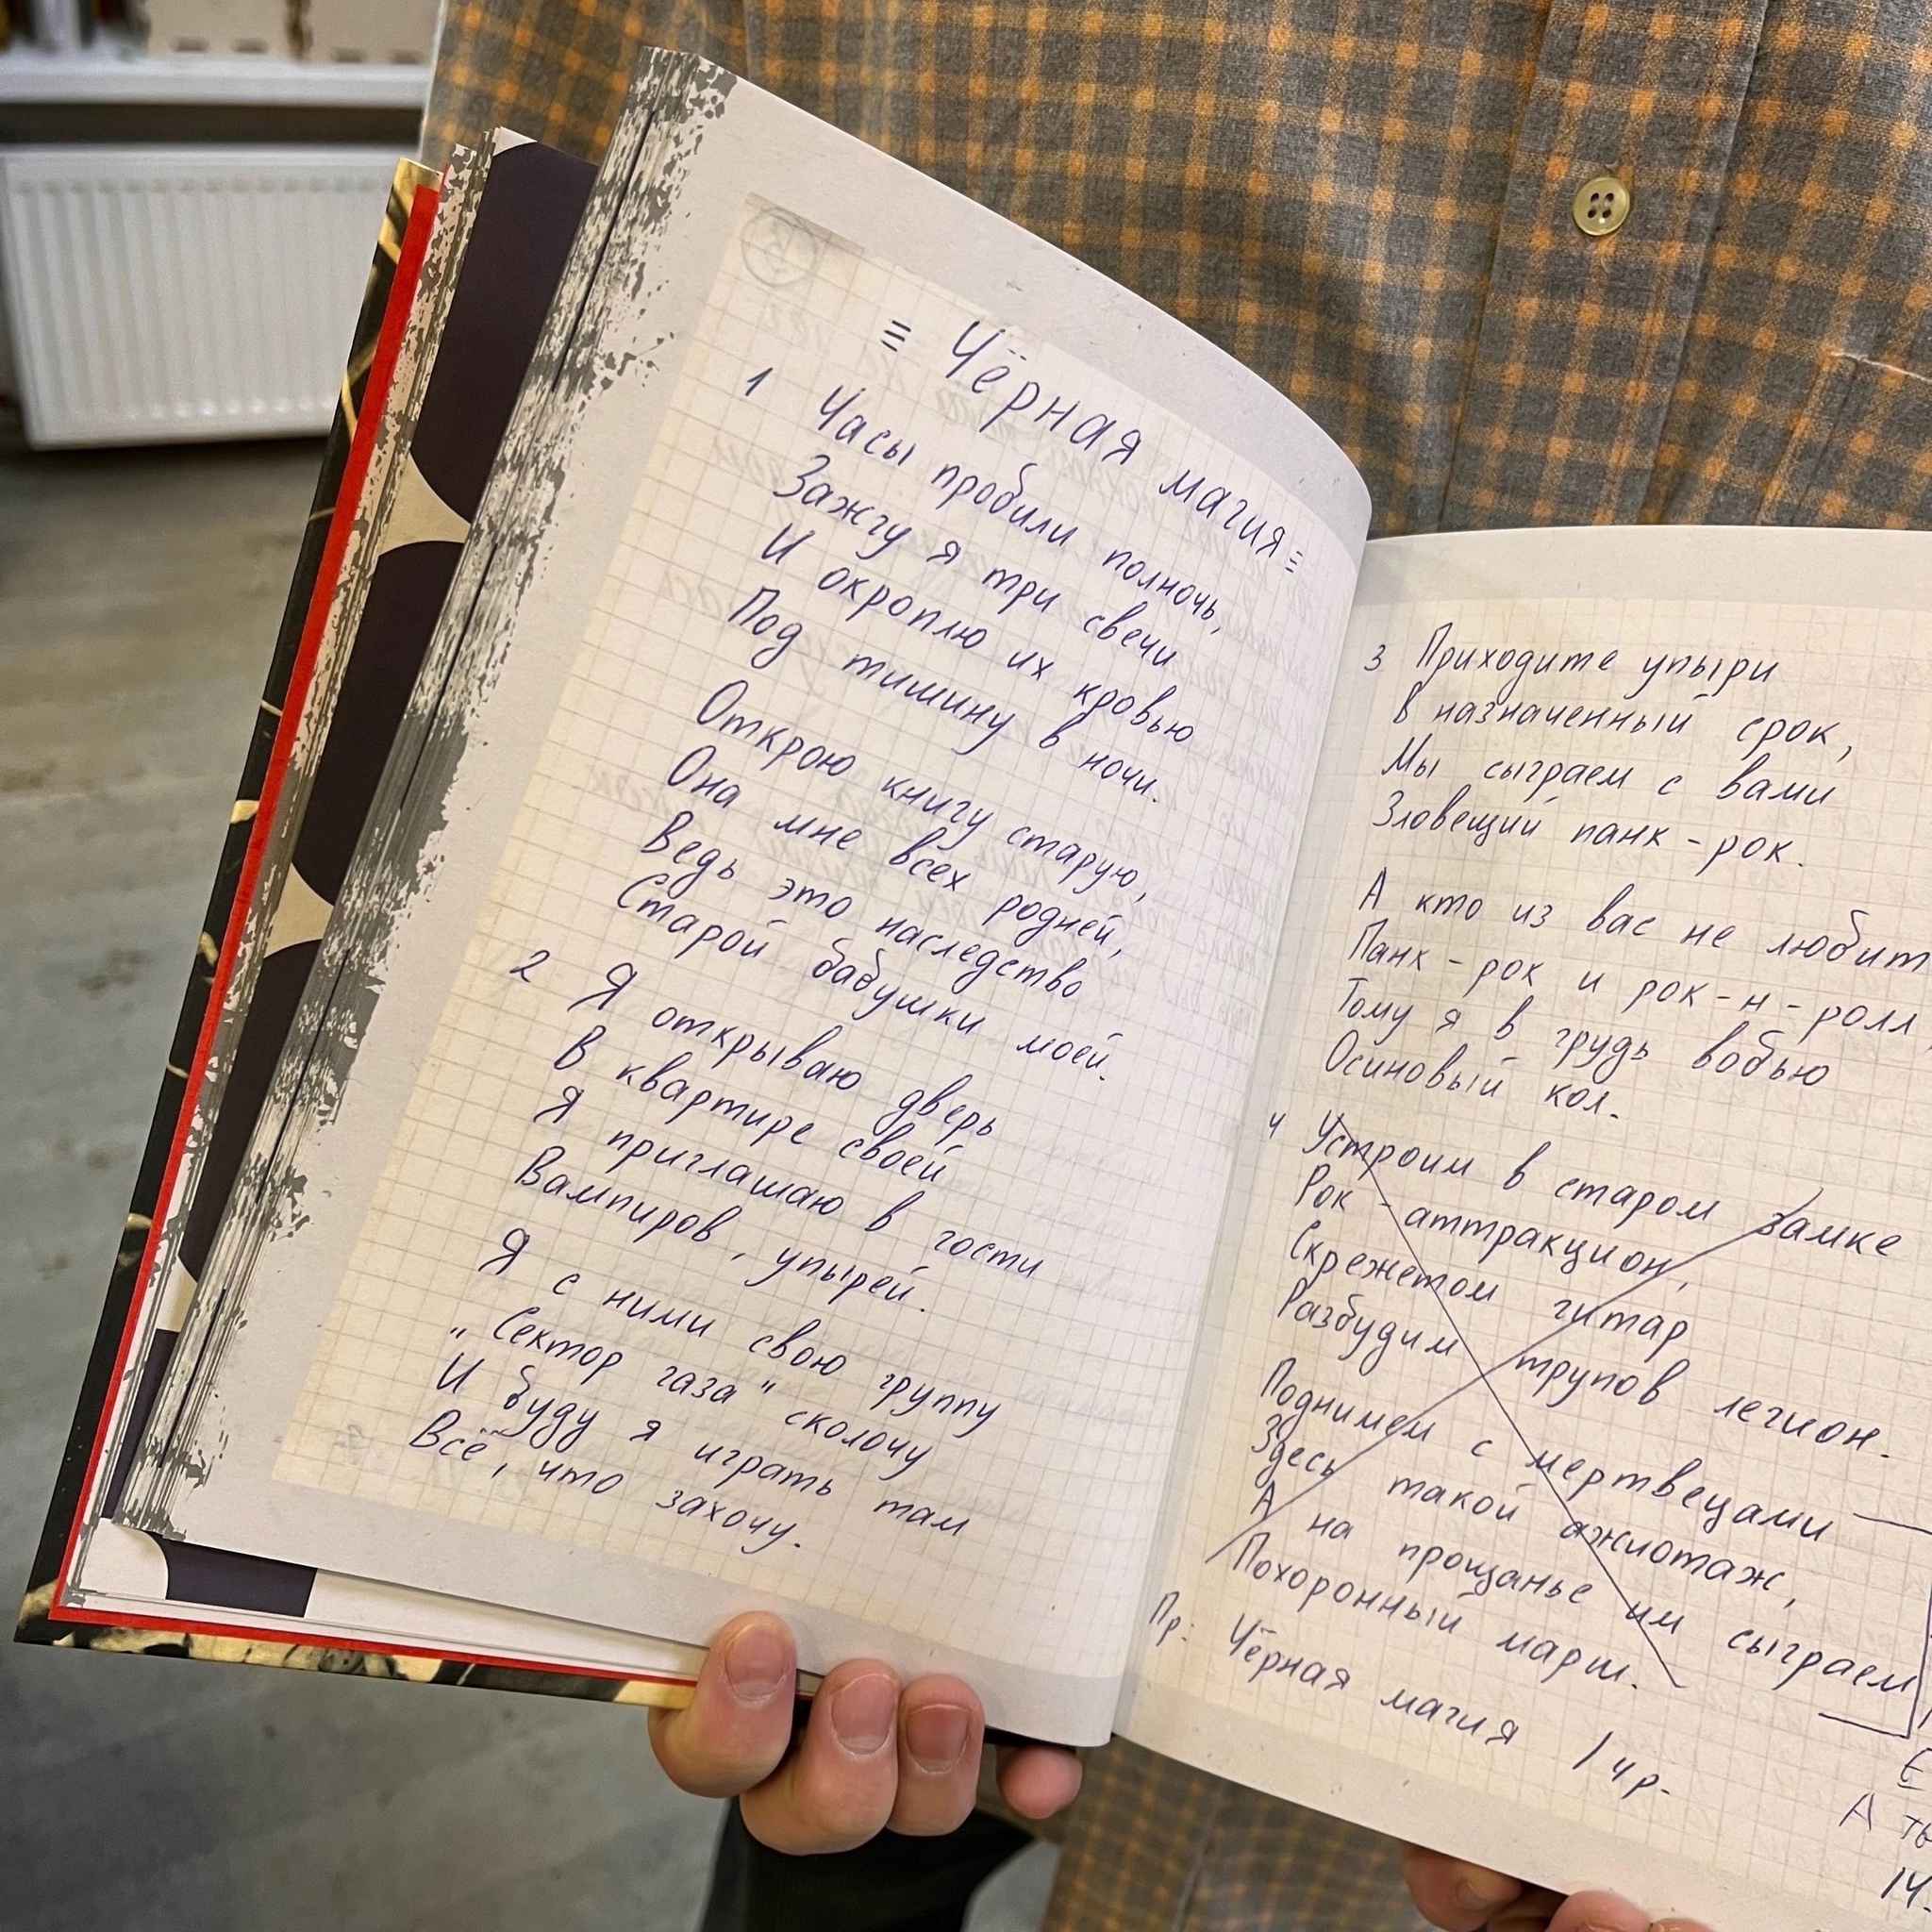 ≡ Чёрная магия ≡
1 Часы пробили полночь,
Зажгу я три свечи
И окроплю их кровью
Под тишину в ночи.
Открою книгу старую,
Она мне всех родней,
Ведь это наследство
Старой бабушки моей.
2 Я открываю дверь
В квартире своей
Я приглашаю в гости
Вампиров, упырей.
Я с ними свою группу
"Сектор газа" сколочу
И буду я играть там
Всё, что захочу.
3 Приходите упыри
В назначенный срок,
Мы сыграем с вами
Зловещий панк-рок.
А кто из вас не любит
Панк-рок и рок-н-ролл,
Тому я в грудь вобью
Осиновый кол.
4 Устроим в старом замке
Рок-аттракцион,
Скрежетом гитар
Разбудим трупов легион.
Поднимем с мертвецами
Здесь такой ажиотаж,
А на прощанье им сыграем
Похоронный марш.
Пр: Чёрная магия / 4р.
А
14